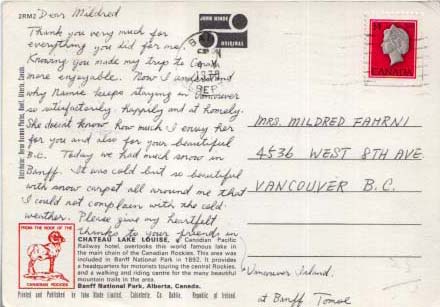 2RM2
Dear Mildred
Thank you very much for
everything you did for me.
Knowing you made my trip to Canada
more enjoyable. Now I understand
why Namie keeps staying in Vancouver
so satisfactorily happily and at homely.
She doesnt know how much I envy her
for you and also for your beautiful
B.C. Today we had much snow in
Banff. It was cold but so beautiful
with snow carpet all around me that
I could not complain with the cold
weather. Please give my heartfelt
thanks to your friends in
Vancouver Island.
at Banff
FROM THE ROOF OF THE
CANADIAN ROCKIES
CHATEAU LAKE LOUISE, a Canadian Pacific
Railway hotel, overlooks this world famous lake in
the main chain of the Canadian Rockies. This area was
included in Banff National Park in 1892. It provides
a headquarters for motorists touring the central Rockies,
and a walking and riding centre for the many beautiful
mountain trails in the area.
Banff National Park, Alberta, Canada.
Printed and Published by John Hinde Limited, Cabinteely, Co. Dublin, Republic of Ireland.
JOHN HINDE
ORIGINAL
SEP
CANADA
MRS. MILDRED FAHRNI
4536 WEST 8TH AVE.
VANCOUVER B.C.